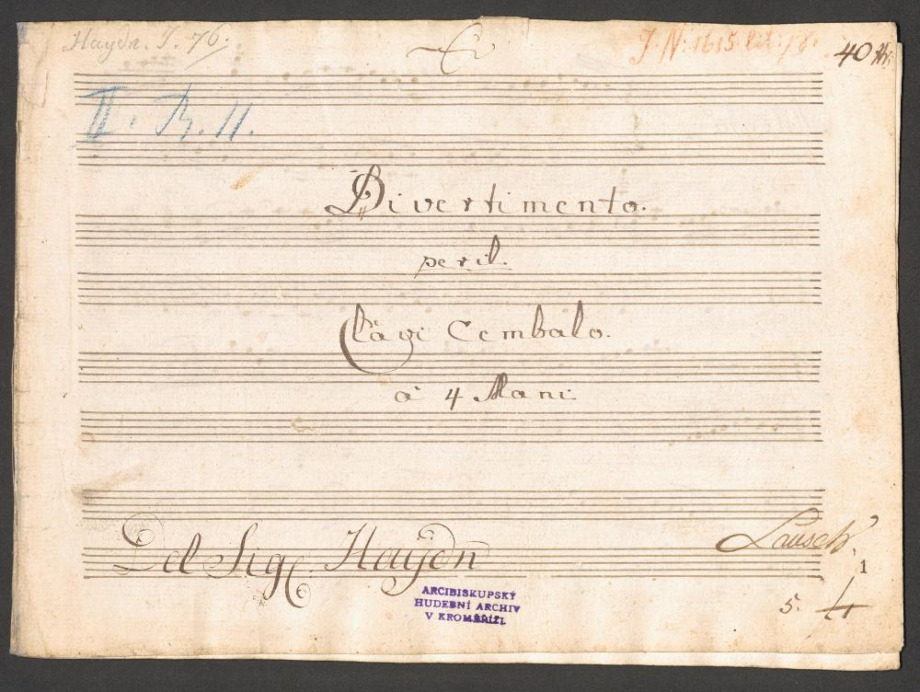 Haydn. I. 76.
I. N: 1615. lit: 76.
40
II. B. 11.
Divertimento.
per il.
Clavi Cembalo.
à 4 Mani
Del Sigr Haÿdn
Lausch
1
ARCIBISKUPSKÝ
HUDEBNÍ ARCHIV
V KROMĚŘÍŽI
5.